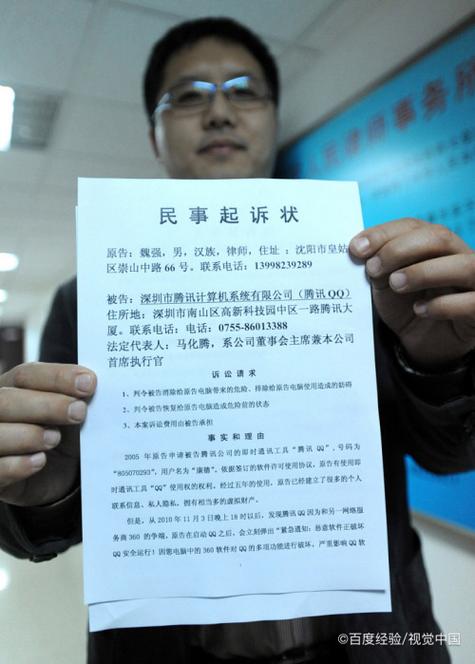 人民律师事务所
民事起诉状
原告：魏强，男，汉族，律师，住址：沈阳市皇姑
区崇山中路66号。联系电话：13998239289
被告：深圳市腾讯计算机系统有限公司（腾讯QQ）
住所地：深圳市南山区高新科技园中区一路腾讯大
厦。联系电话：电话：0755-86013388
法定代表人：马化腾，系公司董事会主席兼本公司
首席执行官
诉讼请求
1、判令被告消除给原告电脑带来的危险、排除给原告电脑使用造成的妨碍
2、判令被告恢复给原告电脑造成危险前的状态
3、本案诉讼费用由被告承担
事实和理由
2005年原告申请被告腾讯公司的即时通讯工具“腾讯QQ”,号码为
“805070293”，用户名为“康德”。依据签订的软件许可使用协议，原告有使用即
时通讯工具“QQ”使用权的权利。经过五年的使用，原告已经建立了很多的个人
联系信息、私人隐私，拥有相当多的虚拟财产。
但是，从2010年11月3日晚上18时以后，发现腾讯QQ因为和另一网络服
务商360的争端，原告在启动QQ之后，会立刻弹出“紧急通知：恶意软件正破坏
QQ安全运行！因您电脑中的360软件对QQ的多项功能进行破坏，严重影响QQ软
1
©百度经验/视觉中国